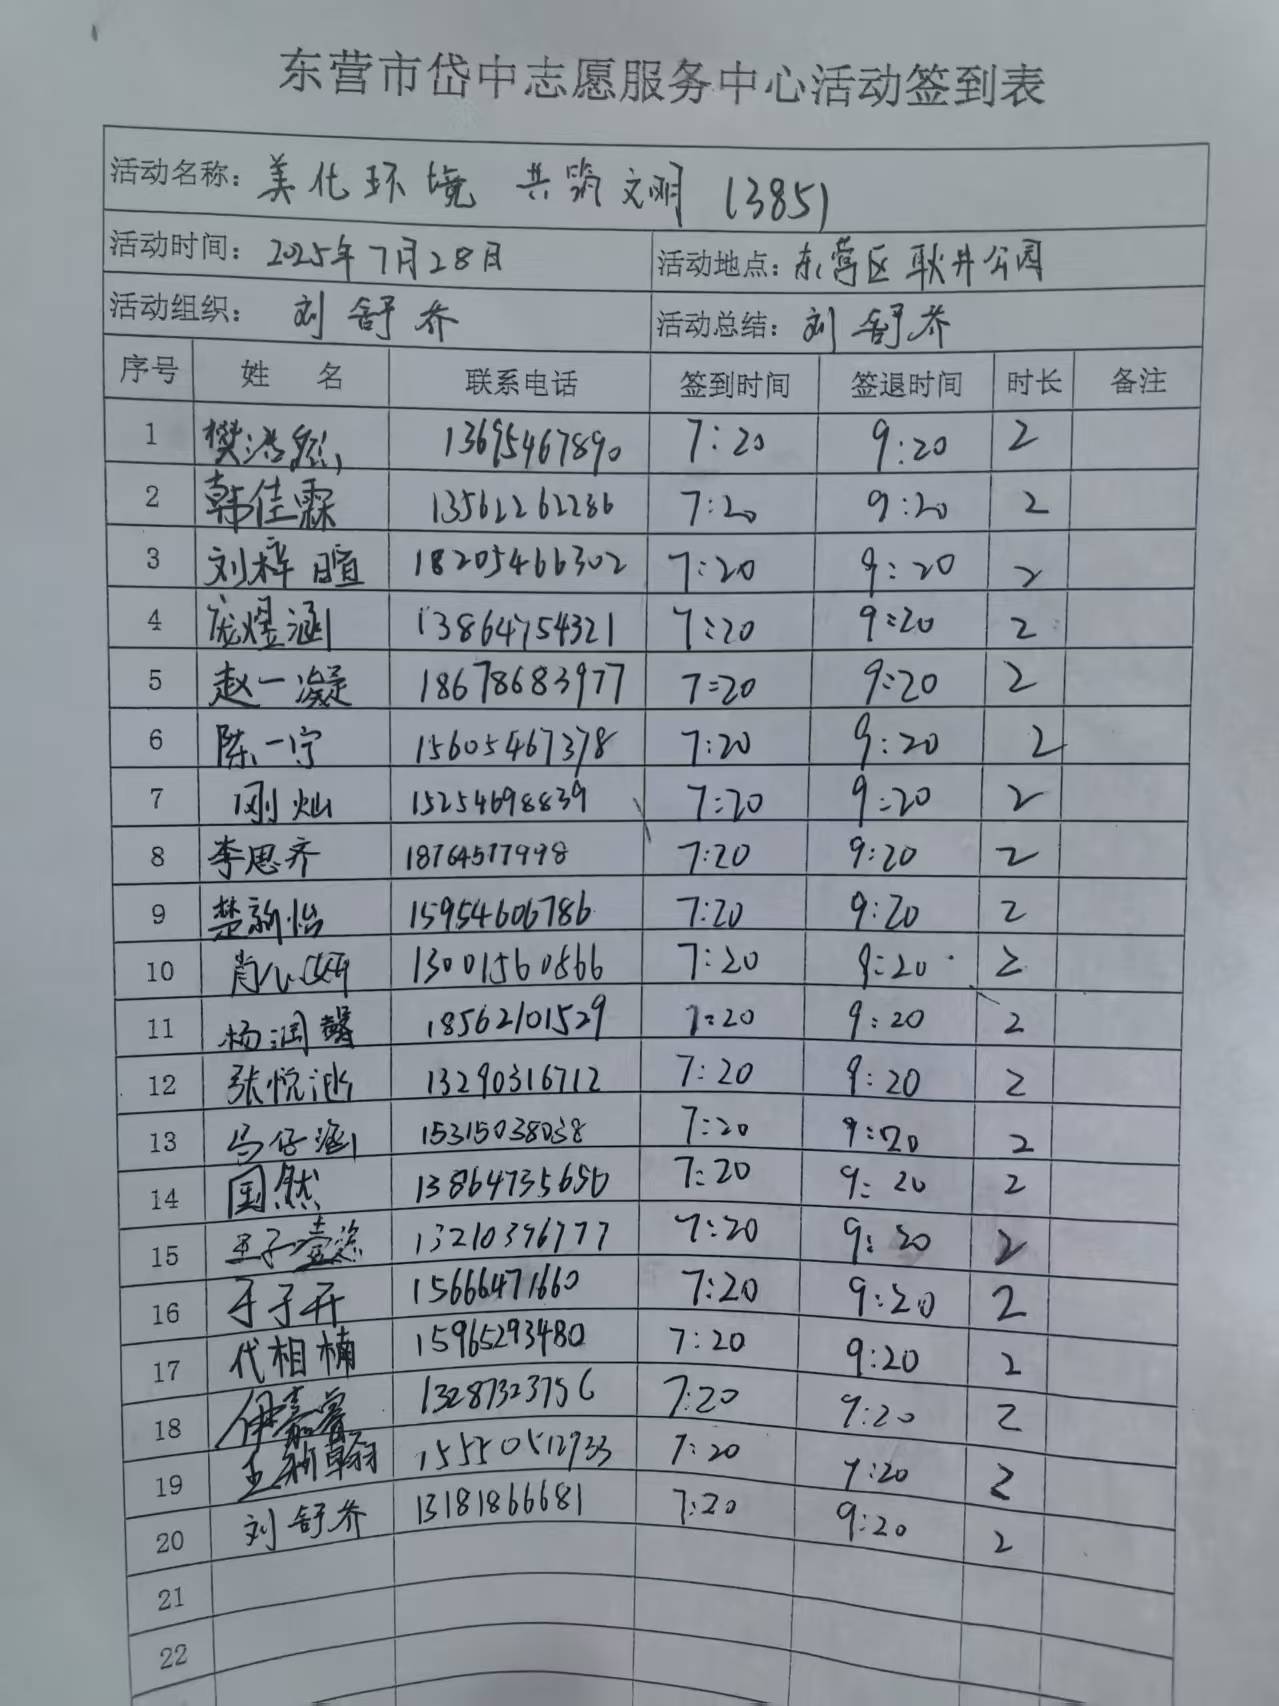 东营市岱中志愿服务中心活动签到表
活动名称：美化环境 共筑文明 (385)
活动时间：2025年7月28日 活动地点：东营区耿井公园
活动组织：刘舒乔 活动总结：刘舒乔
序号 姓名 联系电话 签到时间 签退时间 时长 备注
1 樊浩然 13695467890 7:20 9:20 2
2 韩佳霖 13562262286 7:20 9:20 2
3 刘梓暄 18205466302 7:20 9:20 2
4 庞煜涵 13864754321 7:20 9:20 2
5 赵一凝 18678683977 7:20 9:20 2
6 陈一宁 15605467378 7:20 9:20 2
7 刚灿 15254698839 7:20 9:20 2
8 李思齐 18764577998 7:20 9:20 2
9 楚新怡 15954606786 7:20 9:20 2
10 肖 妍 13001560866 7:20 9:20 2
11 杨润馨 18562101529 7:20 9:20 2
12 张悦 13290316712 7:20 9:20 2
13 马仔涵 15315038038 7:20 9:20 2
14 国然 13864735650 7:20 9:20 2
15 王子 13210376777 7:20 9:20 2
16 于子开 15666471660 7:20 9:20 2
17 代相楠 15965293480 7:20 9:20 2
18 伊嘉睿 13287323756 7:20 9:20 2
19 王 翰 15550512933 7:20 9:20 2
20 刘舒乔 13181866681 7:20 9:20 2
21
22